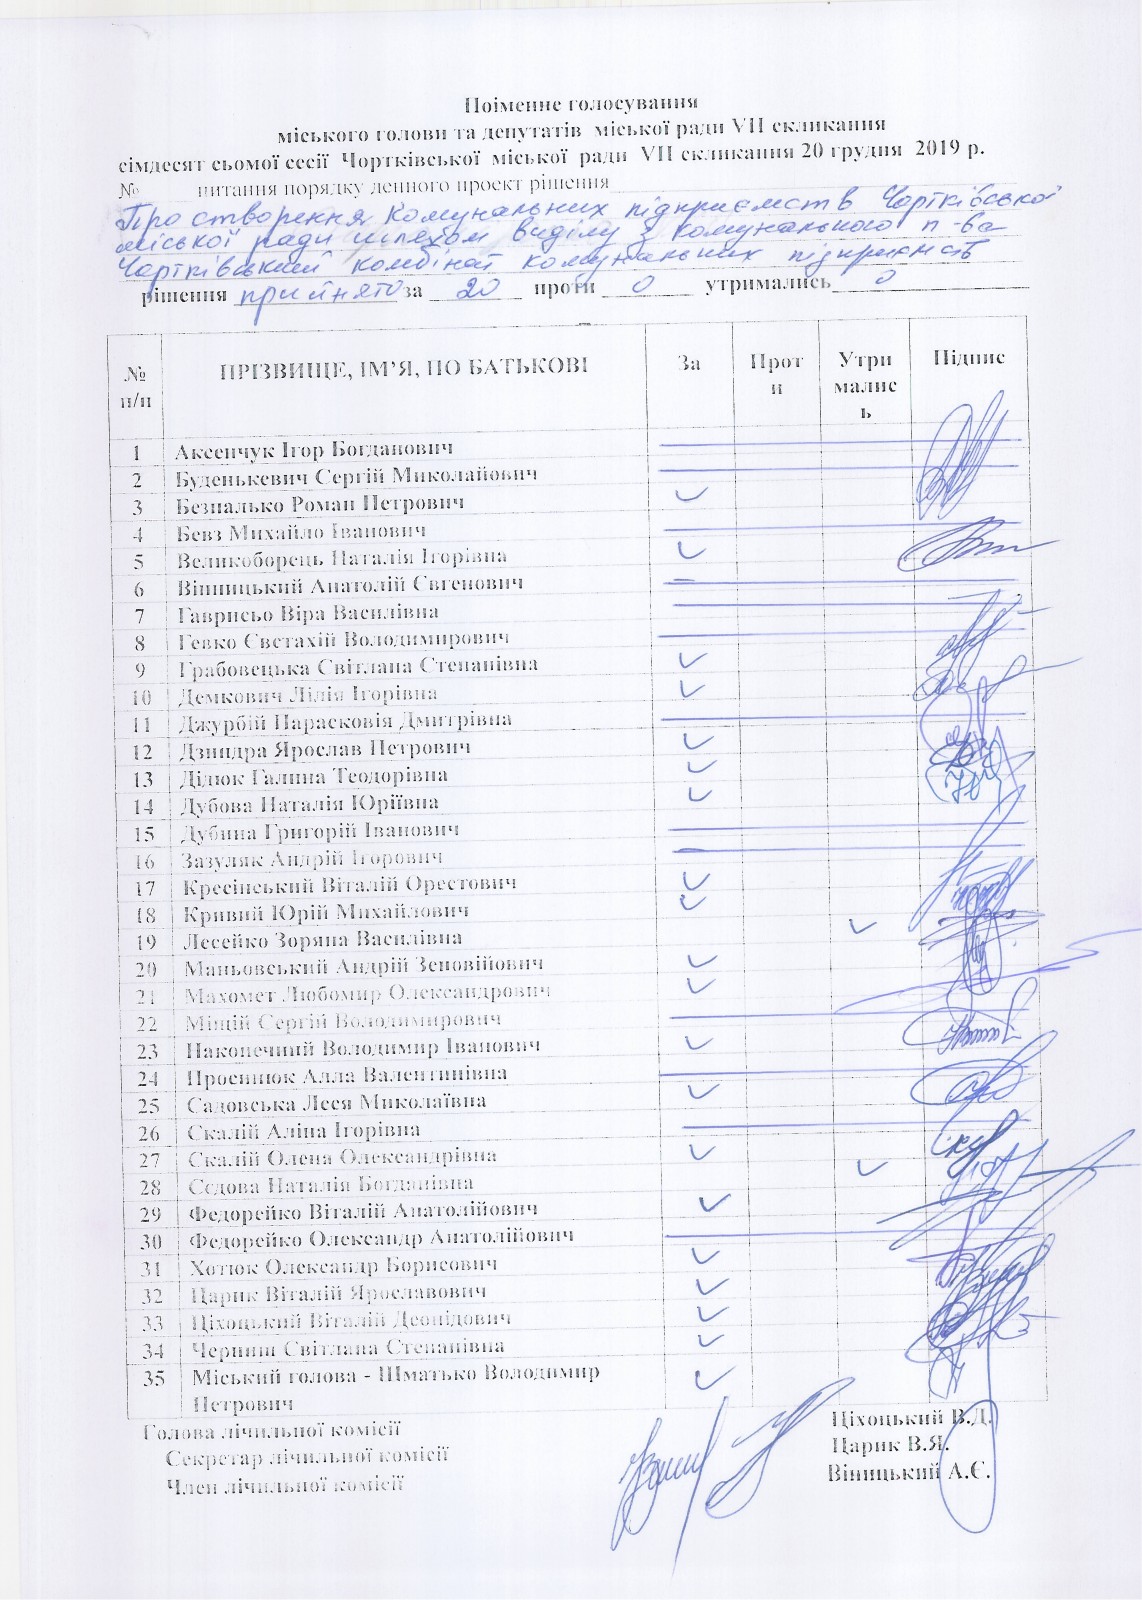 Поіменне голосування
міського голови та депутатів міської ради VII скликання
сімдесят сьомої сесії Чортківської міської ради VII скликання 20 грудня 2019 р.
№ питання порядку денного проект рішення
Про створення комунальних підприємств Чортківської
міської ради шляхом виділу з комунального п-ва
Чортківський комбінат комунальних підприємств
рішення прийнято за 20 проти 0 утримались 0
№ п/п ПРІЗВИЩЕ, ІМ'Я, ПО БАТЬКОВІ За Проти Утримались Підпис
1 Аксенчук Ігор Богданович
2 Буденькевич Сергій Миколайович
3 Безпалько Роман Петрович ✓
4 Бевз Михайло Іванович
5 Великоборець Наталія Ігорівна ✓
6 Вінницький Анатолій Євгенович
7 Гаврисьо Віра Василівна
8 Гевко Євстахій Володимирович
9 Грабовецька Світлана Степанівна ✓
10 Демкович Лілія Ігорівна ✓
11 Джурбій Парасковія Дмитрівна
12 Дзиндра Ярослав Петрович ✓
13 Дідюк Галина Теодорівна ✓
14 Дубова Наталія Юріївна ✓
15 Дубина Григорій Іванович
16 Зазуляк Андрій Ігорович
17 Кресінський Віталій Орестович ✓
18 Кривий Юрій Михайлович ✓
19 Лесейко Зоряна Василівна ✓
20 Маньовський Андрій Зеновійович ✓
21 Махомет Любомир Олександрович ✓
22 Міщій Сергій Володимирович
23 Наконечний Володимир Іванович ✓
24 Просинюк Алла Валентинівна
25 Садовська Леся Миколаївна ✓
26 Скалій Аліна Ігорівна
27 Скалій Олена Олександрівна ✓
28 Сєдова Наталія Богданівна ✓
29 Федорейко Віталій Анатолійович ✓
30 Федорейко Олександр Анатолійович
31 Хотюк Олександр Борисович ✓
32 Царик Віталій Ярославович ✓
33 Ціхоцький Віталій Деонідович ✓
34 Черниш Світлана Степанівна ✓
35 Міський голова - Шматько Володимир ✓
Петрович
Голова лічильної комісії Ціхоцький В.Д.
Секретар лічильної комісії Царик В.Я.
Член лічильної комісії Віницький А.Є.